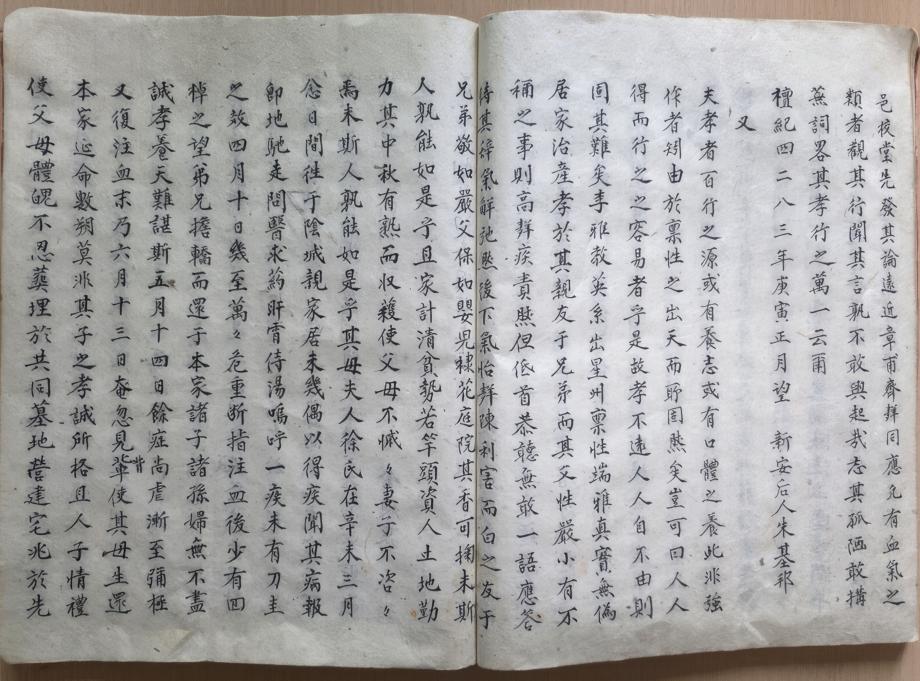 邑校堂先發其論遠近章甫齊聲同應凡有血氣之
類者觀其行聞其言孰不敢與起哉志其孤陋敢搆
蕪詞畧其孝行之萬一云爾
檀紀四二八三年庚寅正月望 新安后人朱基邦
又
夫孝者百行之源或有養志或有口體之養此非強
作者矧由於稟性之出天而所固然矣豈可曰人人
得而行之之容易者乎是故孝不遠人人自不由則
固其難矣李雅教英系出星州稟性端雅真實無僞
居家治產孝於其親友于兄弟而其父性嚴小有不
稱之事則高聲疾責然但低首恭聽無敢一語應答
待其辭氣解弛然後下氣怡聲陳利害而白之友于
兄弟敬如嚴父保如嬰児棣花庭院其香可掬末斯
人孰能如是乎且家計清貧勢若竿頭資人土地勤
力其中秋有熟而收穫使父母不慽々妻子不咨々
焉末斯人孰能如是乎其母夫人徐氏在辛未三月
念日間徃于陰城親家居未幾偶以得疾聞其病報
卽地馳走問醫求葯旰宵侍湯嗚呼一疾未有刀圭
之效四月十日幾至萬々危重斷指注血後少有回
棹之望弟兄擔轎而還于本家諸子諸孫婦無不盡
誠孝養天難諶斯五月十四日餘症尚虐漸至彌極
又復注血末乃六月十三日奄忽見背輩使其母生還
本家延命數朔莫非其子之孝誠所格且人子情禮
使父母體魄不忍葬埋於共同墓地營建宅兆於先